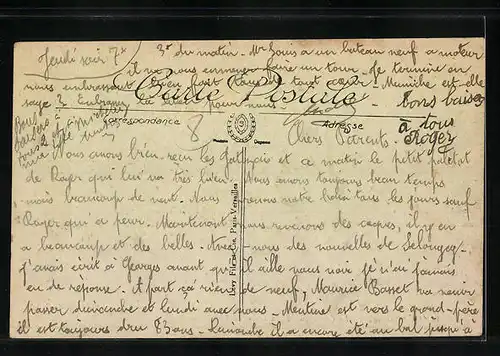 Jeudi soir 7h
3h du matin. Mr Louis a un bateau neuf a moteur
il va nous emmener faire un tour. Je termine en
nous embrassant bien fort tous de tout cœur. Mimiche est-elle
sage ? Embrassez la pour nous
Carte Postale
bons baisers
à tous
Roger
Correspondance
Adresse
8
Chers Parents
Nous avons bien reçu les et ce matin le petit paletot
de Roger qui lui va très bien. Nous avons toujours beau temps
mais beaucoup de vent. Nous prenons notre bain tous les jours sauf
Roger qui a peur. Maintenant nous des coques, il y en
a beaucoup et des belles. Avez nous des nouvelles de
J'avais écrit à Georges avant qu'il aille vous voir je n'ai jamais
eu de reponse. A part ça rien de neuf, Maurice Basset va venir
passer dimanche et lundi avec nous. est vert le grand-père
il est toujours dru 83 ans. Dimanche il a encore été au bal jusqu'à
Lévy Fils et Cie, Paris-Versailles